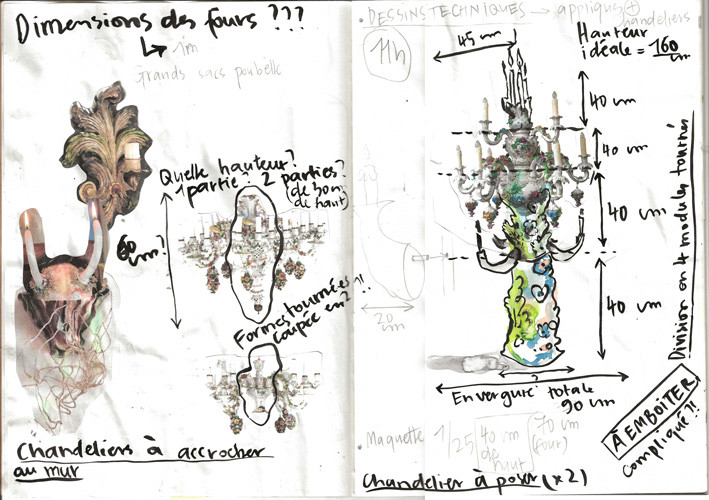 Dimensions des fours ???
1m
Grands sacs poubelle
Quelle hauteur?
1 partie? 2 parties?
(de bon-
de haut)
60 cm?
Formes tournées
coupée en 2 ?!
Chandeliers à accrocher
au mur
. DESSINS TECHNIQUES → appliques +
chandeliers
11h
45 cm
Hauteur
idéale = 160
cm
40 cm
40 cm
40 cm
40 cm
Division en 4 modules tournés
20
cm
?
Envergure totale
90 cm
À EMBOITER
compliqué?!
Maquette 1/25
40 cm
de
haut
70 cm
(four)
Chandelier à poser (x2)